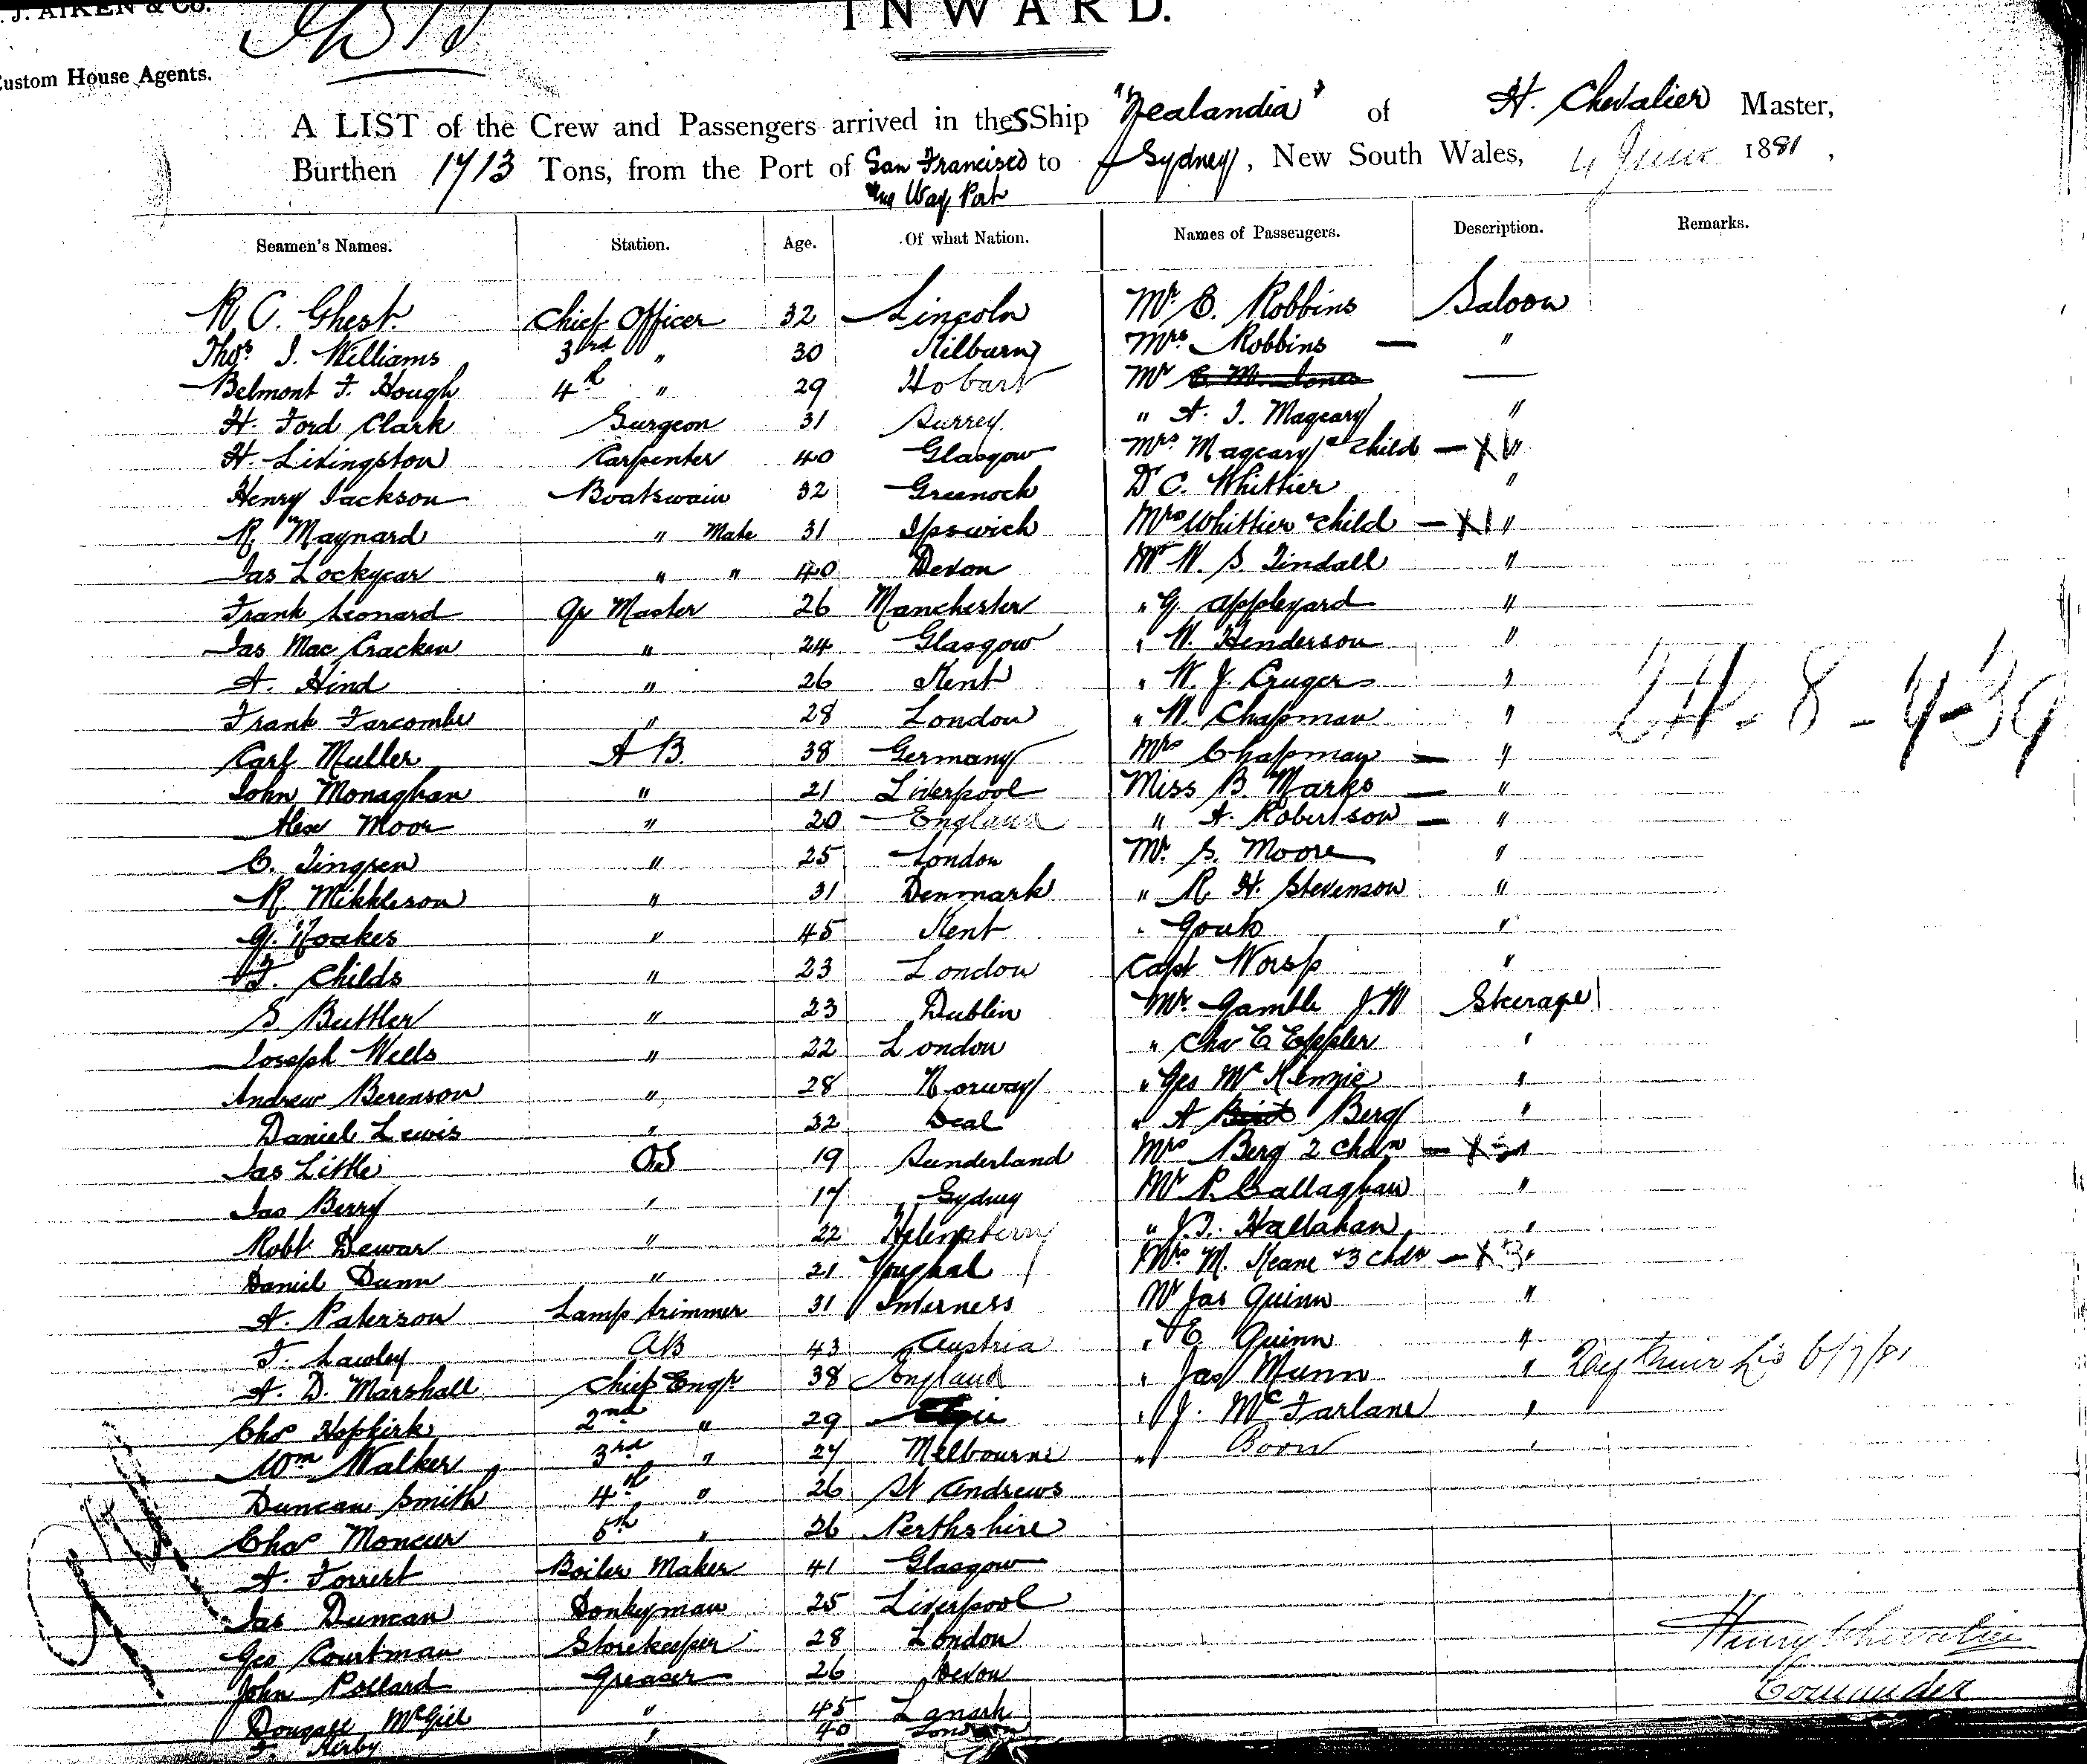 J. AIKEN & CO.
INWARD.
Custom House Agents.
A LIST of the Crew and Passengers arrived in the SShip "Zealandia" of H. Chevalier Master,
Burthen 1713 Tons, from the Port of San Francisco to Sydney, New South Wales, 4 June 1881,
Way Port
Seamen's Names. Station. Age. Of what Nation. Names of Passengers. Description. Remarks.
R C. Ghest. Chief Officer 32 Lincoln Mr. E. Robbins Saloon
Thos. J. Williams 3rd " 30 Kilburn Mrs Robbins — "
Belmont F. Hough 4th " 29 Hobart Mr —
H. Ford Clark Surgeon 31 Surrey " A. J. Mageary "
H. Livingston Carpenter 40 Glasgow Mrs Mageary & child — X 1 "
Henry Jackson Boatswain 32 Greenock Dr C. Whittier "
R. Maynard " Mate 31 Ipswich Mrs Whittier & child — X 1 "
Jas Lockyear " " 40 Devon Mr W. S. Tindall "
Frank Leonard Qr Master 26 Manchester " G. Appleyard "
Jas Mac Cracken " 24 Glasgow " W. Henderson "
A. Hind " 26 Kent " W. J. Cruger "
Frank Farcombe " 28 London " W. Chapman "
Carl Muller A B 38 Germany Mrs Chapman — "
John Monaghan " 21 Liverpool Miss B. Marks — "
Alex Moor " 20 England " A. Robertson — "
C. Tingsen " 25 London Mr. S. Moore "
R. Mikkleson " 31 Denmark " R. H. Stevenson "
G. Noakes " 45 Kent "
F. Childs " 23 London Capt Worsp "
S Buttler " 23 Dublin Mr. Gamble J. W Steerage
Joseph Wells " 22 London " Chas E Eppler "
Andrew Berenson " 28 Norway " Geo McKenzie "
Daniel Lewis " 32 Deal " A Berg "
Jas Little OS 19 Sunderland Mrs Berg 2 chdn — X "
Jas Berry " 17 Sydney Mr P. Callaghan "
Robt Dewar " 22 " J. T. Hallahan "
Daniel Dunn " 21 Youghal Mrs M. Keane & 3 chdn — X 3 "
A. Paterson Lamp trimmer 31 Inverness Mr Jas Quinn "
F. Lawley AB 43 Austria " E. Quinn "
A. D. Marshall Chief Engr. 38 England " Jas Munn "
Chas Hopkirk 2nd " 29 " J. McFarlane "
Wm Walker 3rd " 27 Melbourne " Boon "
Duncan Smith 4th " 26 St Andrews
Chas Moncur 5th " 26 Perthshire
A. Forrest Boiler Maker 41 Glasgow
Jas Duncan Donkeyman 25 Liverpool
Geo Courtman Storekeeper 28 London
John Pollard Greaser 26 Devon
Dougall McGill " 45 Lanark
F. Kirby " 40 London
Henry Chevalier
Commander